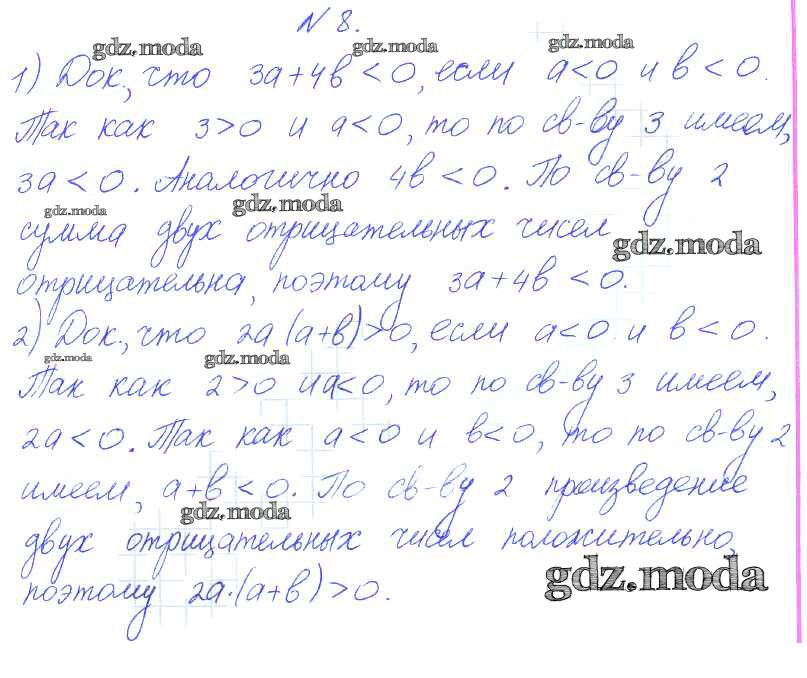 N 8.
gdz.moda gdz.moda gdz.moda
1) Док., что 3a+4в<0, если a<0 и в<0.
Так как 3>0 и a<0, то по св-ву 3 имеем,
3a<0. Аналогично 4в<0. По св-ву 2
gdz.moda gdz.moda
сумма двух отрицательных чисел
gdz.moda
отрицательна, поэтому 3a+4в<0.
2) Док., что 2a(a+в)>0, если a<0 и в<0.
gdz.moda gdz.moda
Так как 2>0 и a<0, то по св-ву 3 имеем,
2a<0. Так как a<0 и в<0, то по св-ву 2
имеем, a+в<0. По св-ву 2 произведение
gdz.moda
двух отрицательных чисел положительно,
gdz.moda
поэтому 2a·(a+в)>0.